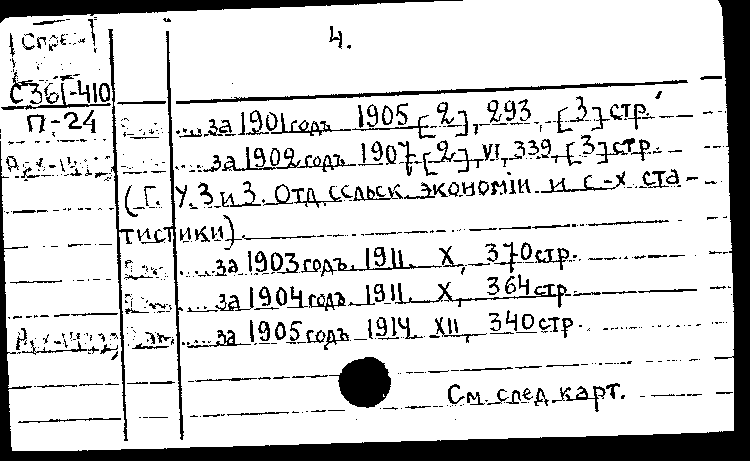 4.
С36Г-410
П-24
....за 1901 годъ 1905 [2], 293, [3] стр.
.... за 1902 годъ 1907. [2], VI, 339, [3] стр.
(Г. У. З и З. Отд сельск. экономіи и с-х ста-
тистики).
.... за 1903 годъ. 1911. X, 370 стр.
.... за 1904 годъ. 1911. X, 364 стр.
.... за 1905 годъ 1914. XII, 340 стр.
См. след. карт.